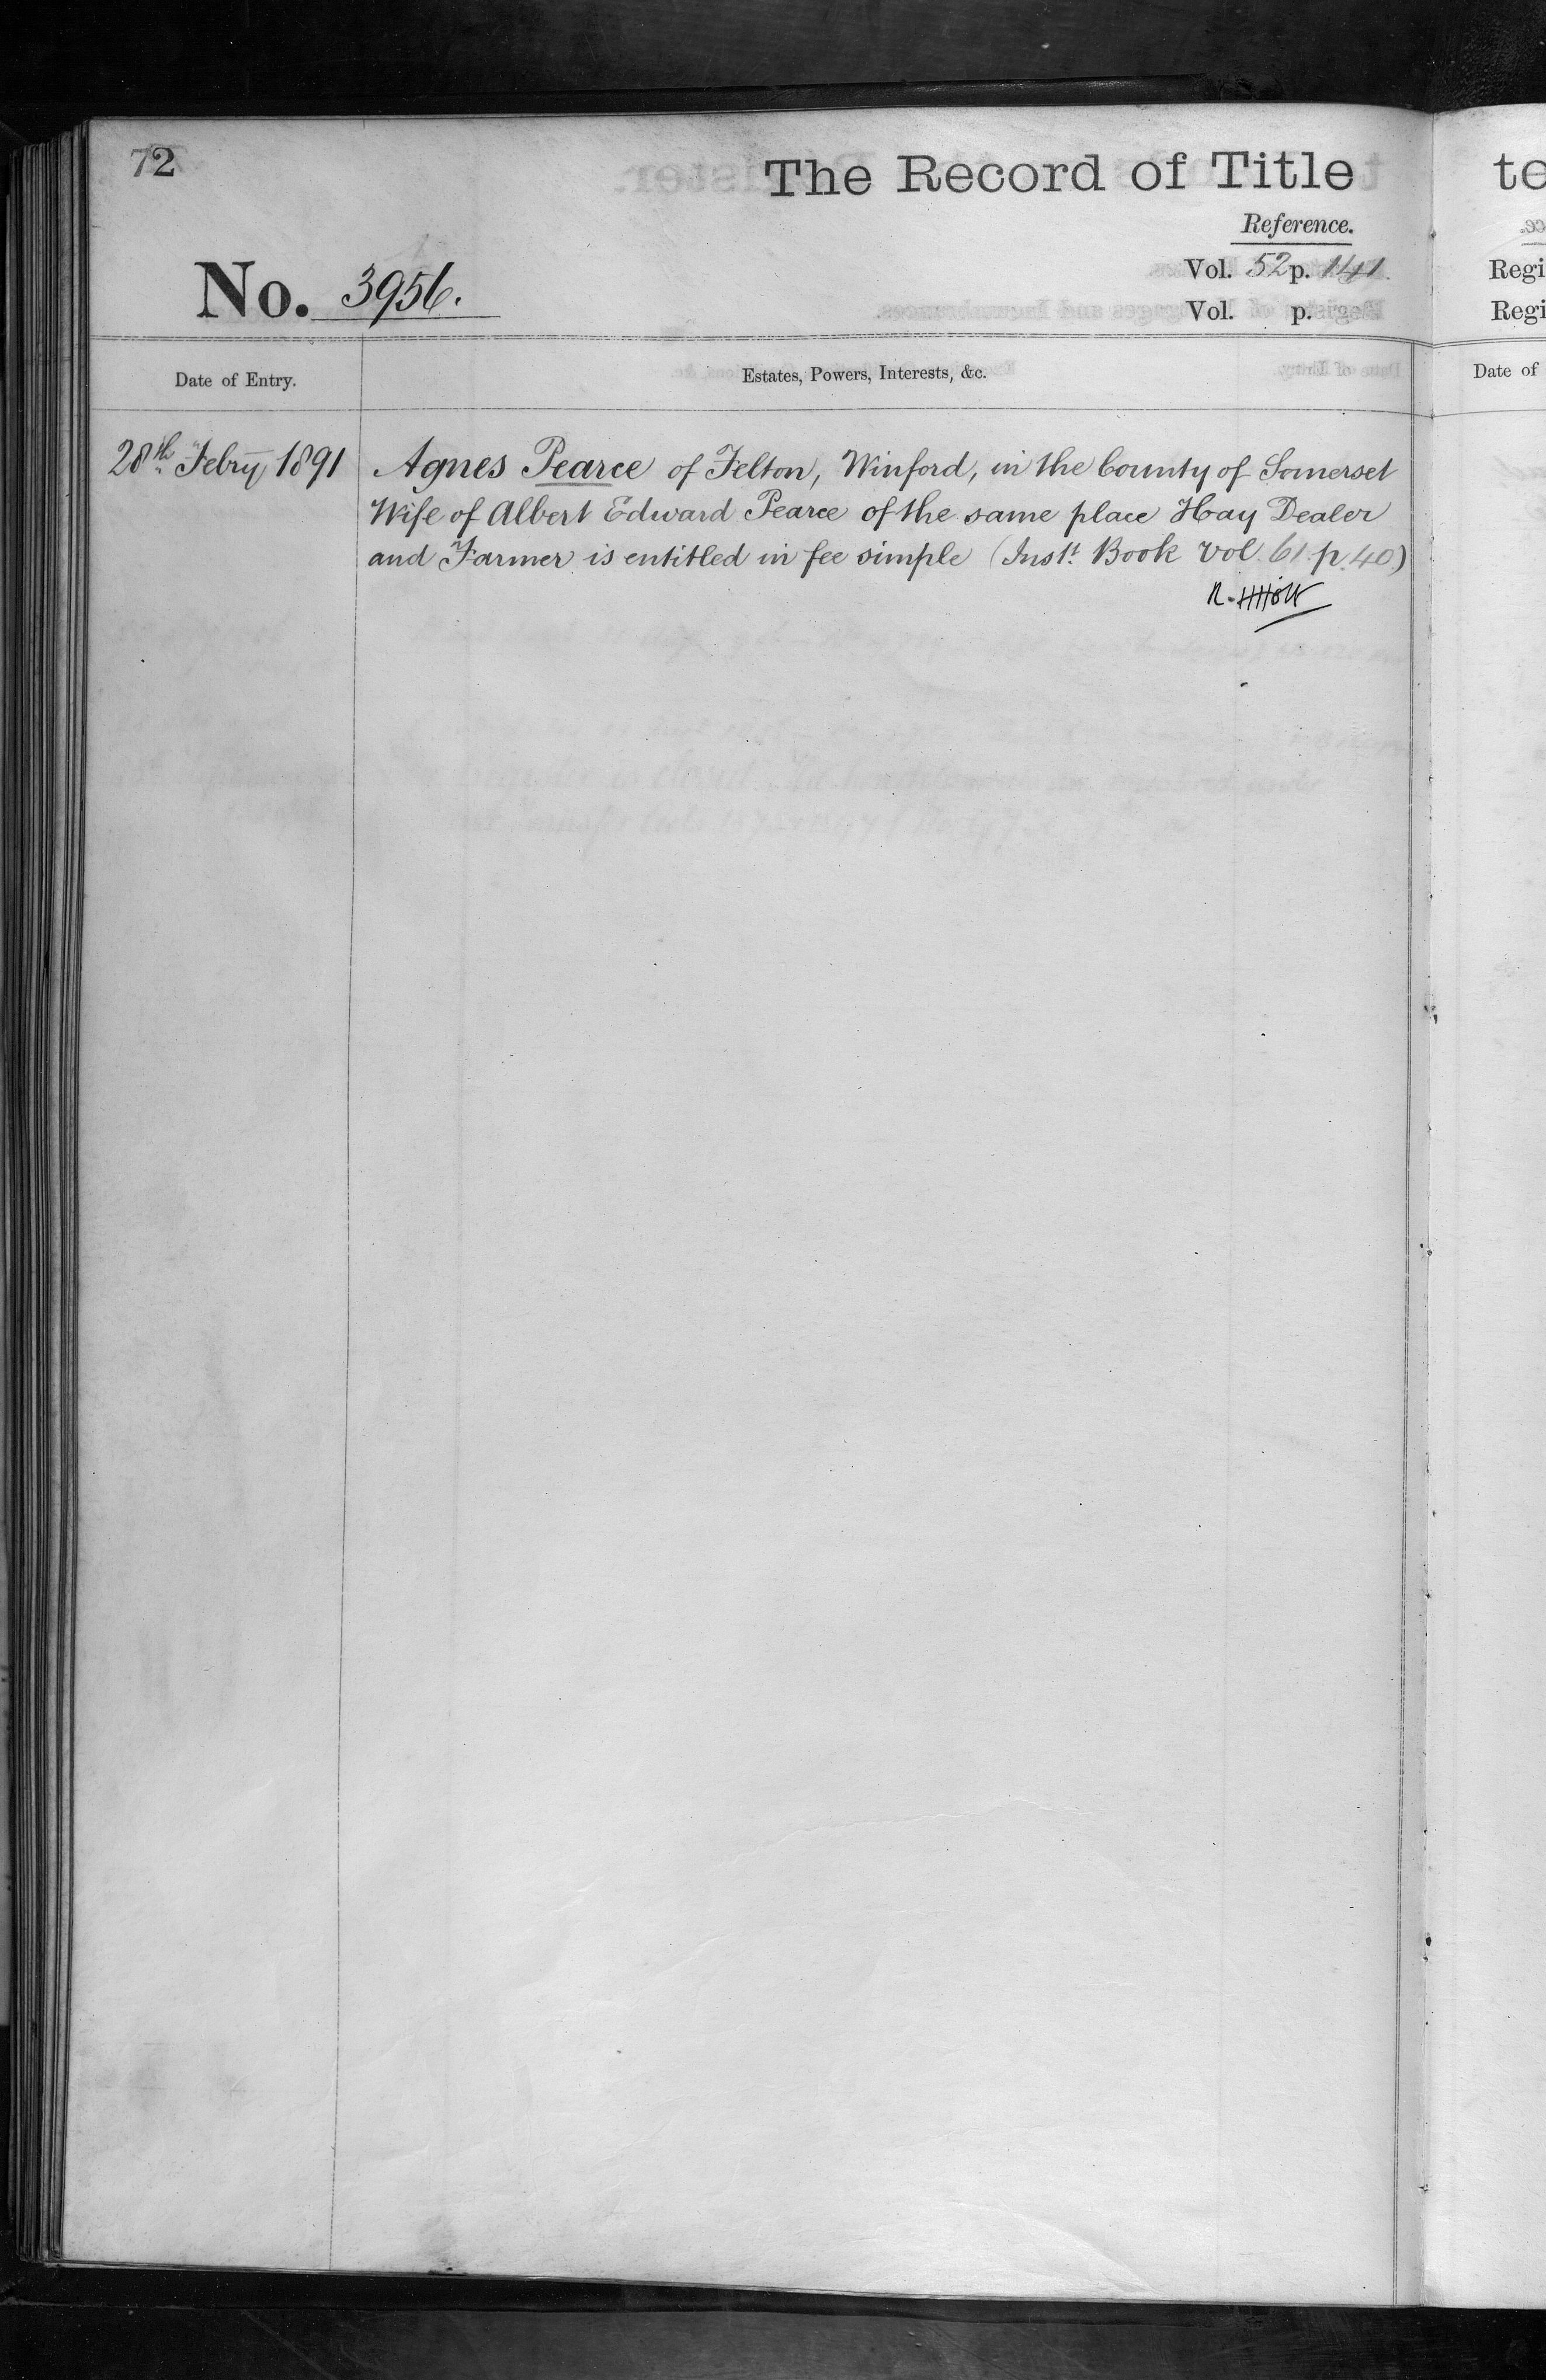 72
The Record of Title
Reference.
No. 3956.
Vol. 52 p. 141.
Vol. p.
Date of Entry.
Estates, Powers, Interests, &c.
28th Febry 1891
Agnes Pearce of Felton, Winford, in the County of Somerset
Wife of Albert Edward Pearce of the same place Hay Dealer
and Farmer is entitled in fee simple (Inst. Book vol. 61. p. 40.)
te
Regi
Regi
Date of